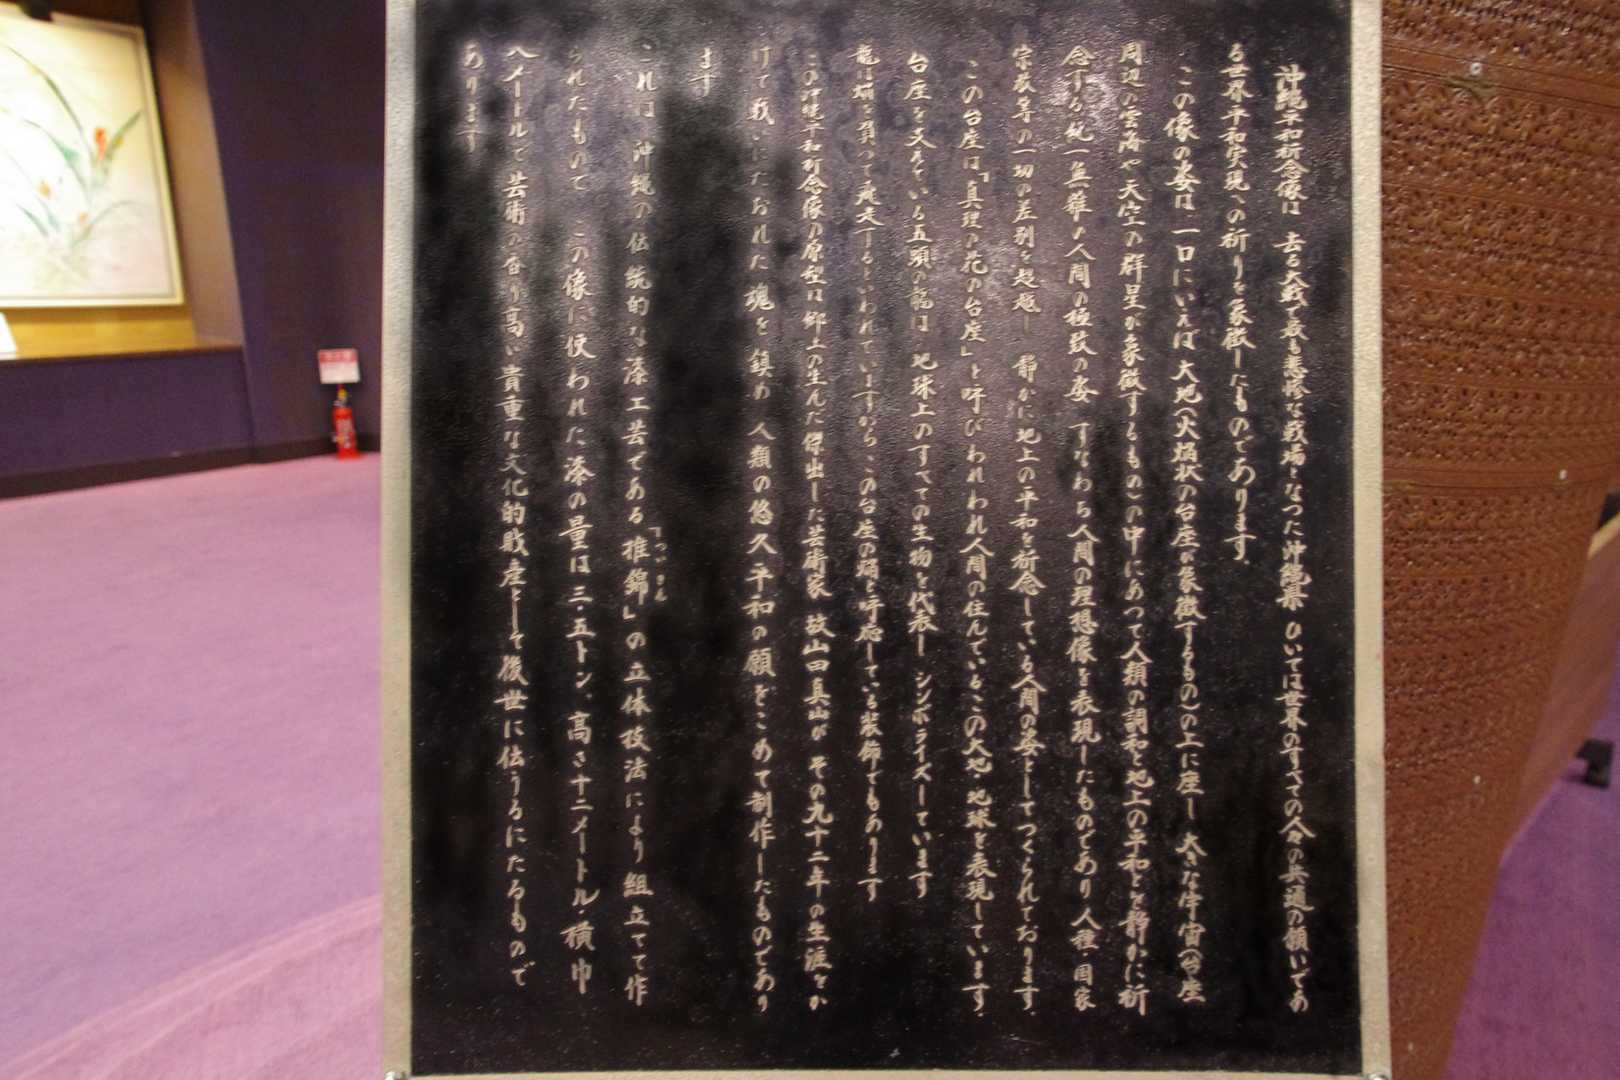 沖縄平和祈念像は 去る大戦で最も悲惨な戦場となつた沖縄県 ひいては世界のすべての人々の共通の願いであ
る世界平和実現への祈りを象徴したものであります
この像の姿は 一口にいえば 大地(火焔状の台座が象徴するもの)の上に座し 大きな宇宙(台座
周辺の雲海や天空の群星が象徴するもの)の中にあつて人類の調和と地上の平和とを静かに祈
念する 純一無雑な人間の極致の姿 すなわち人間の理想像を表現したものであり 人種・国家
宗教等の一切の差別を超越し 静かに地上の平和を祈念している人間の姿としてつくられております
この台座は「真理の花の台座」と呼び われわれ人間の住んでいるこの大地・地球を表現しています
台座を支えている五頭の龍は 地球上のすべての生物を代表し シンボライズしています
龍は蝸を負つて飛走するといわれていますから この台座の蝸と呼応している装飾でもあります
この沖縄平和祈念像の原型は 郷土の生んだ傑出した芸術家 故山田真山が その九十二年の生涯をか
けて 戦いにたおれた魂を鎮め 人類の悠久平和の願をこめて制作したものであり
ます
これは 沖縄の伝統的な漆工芸である「堆錦」の立体技法により組立てて作
ついきん
られたもので この像に使われた漆の量は三・五トン、高さ十二メートル・横巾
八メートルで芸術の香り高い貴重な文化的財産として後世に伝うるにたるもので
あります